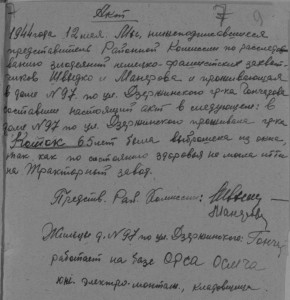 Акт
7
9
1944 года 12 мая Мы, нижеподписавшиеся
представитель Районной Комиссии по расследо-
ванию злодеяний немецко-фашистских захват-
чиков Шведко и Манзрова и проживающая
в доме №97 по ул. Дзержинского гр-ка Гончарова
составили настоящий акт в следующем: в
доме №97 по ул. Дзержинского проживала гр-ка
65 лет была выброшена из окна,
так как по состоянию здоровья не могла идти
на Тракторный завод.
Предст. Рай. Комиссии:
Жилец д. №97 по ул. Дзержинского: Гонч
работает на базе